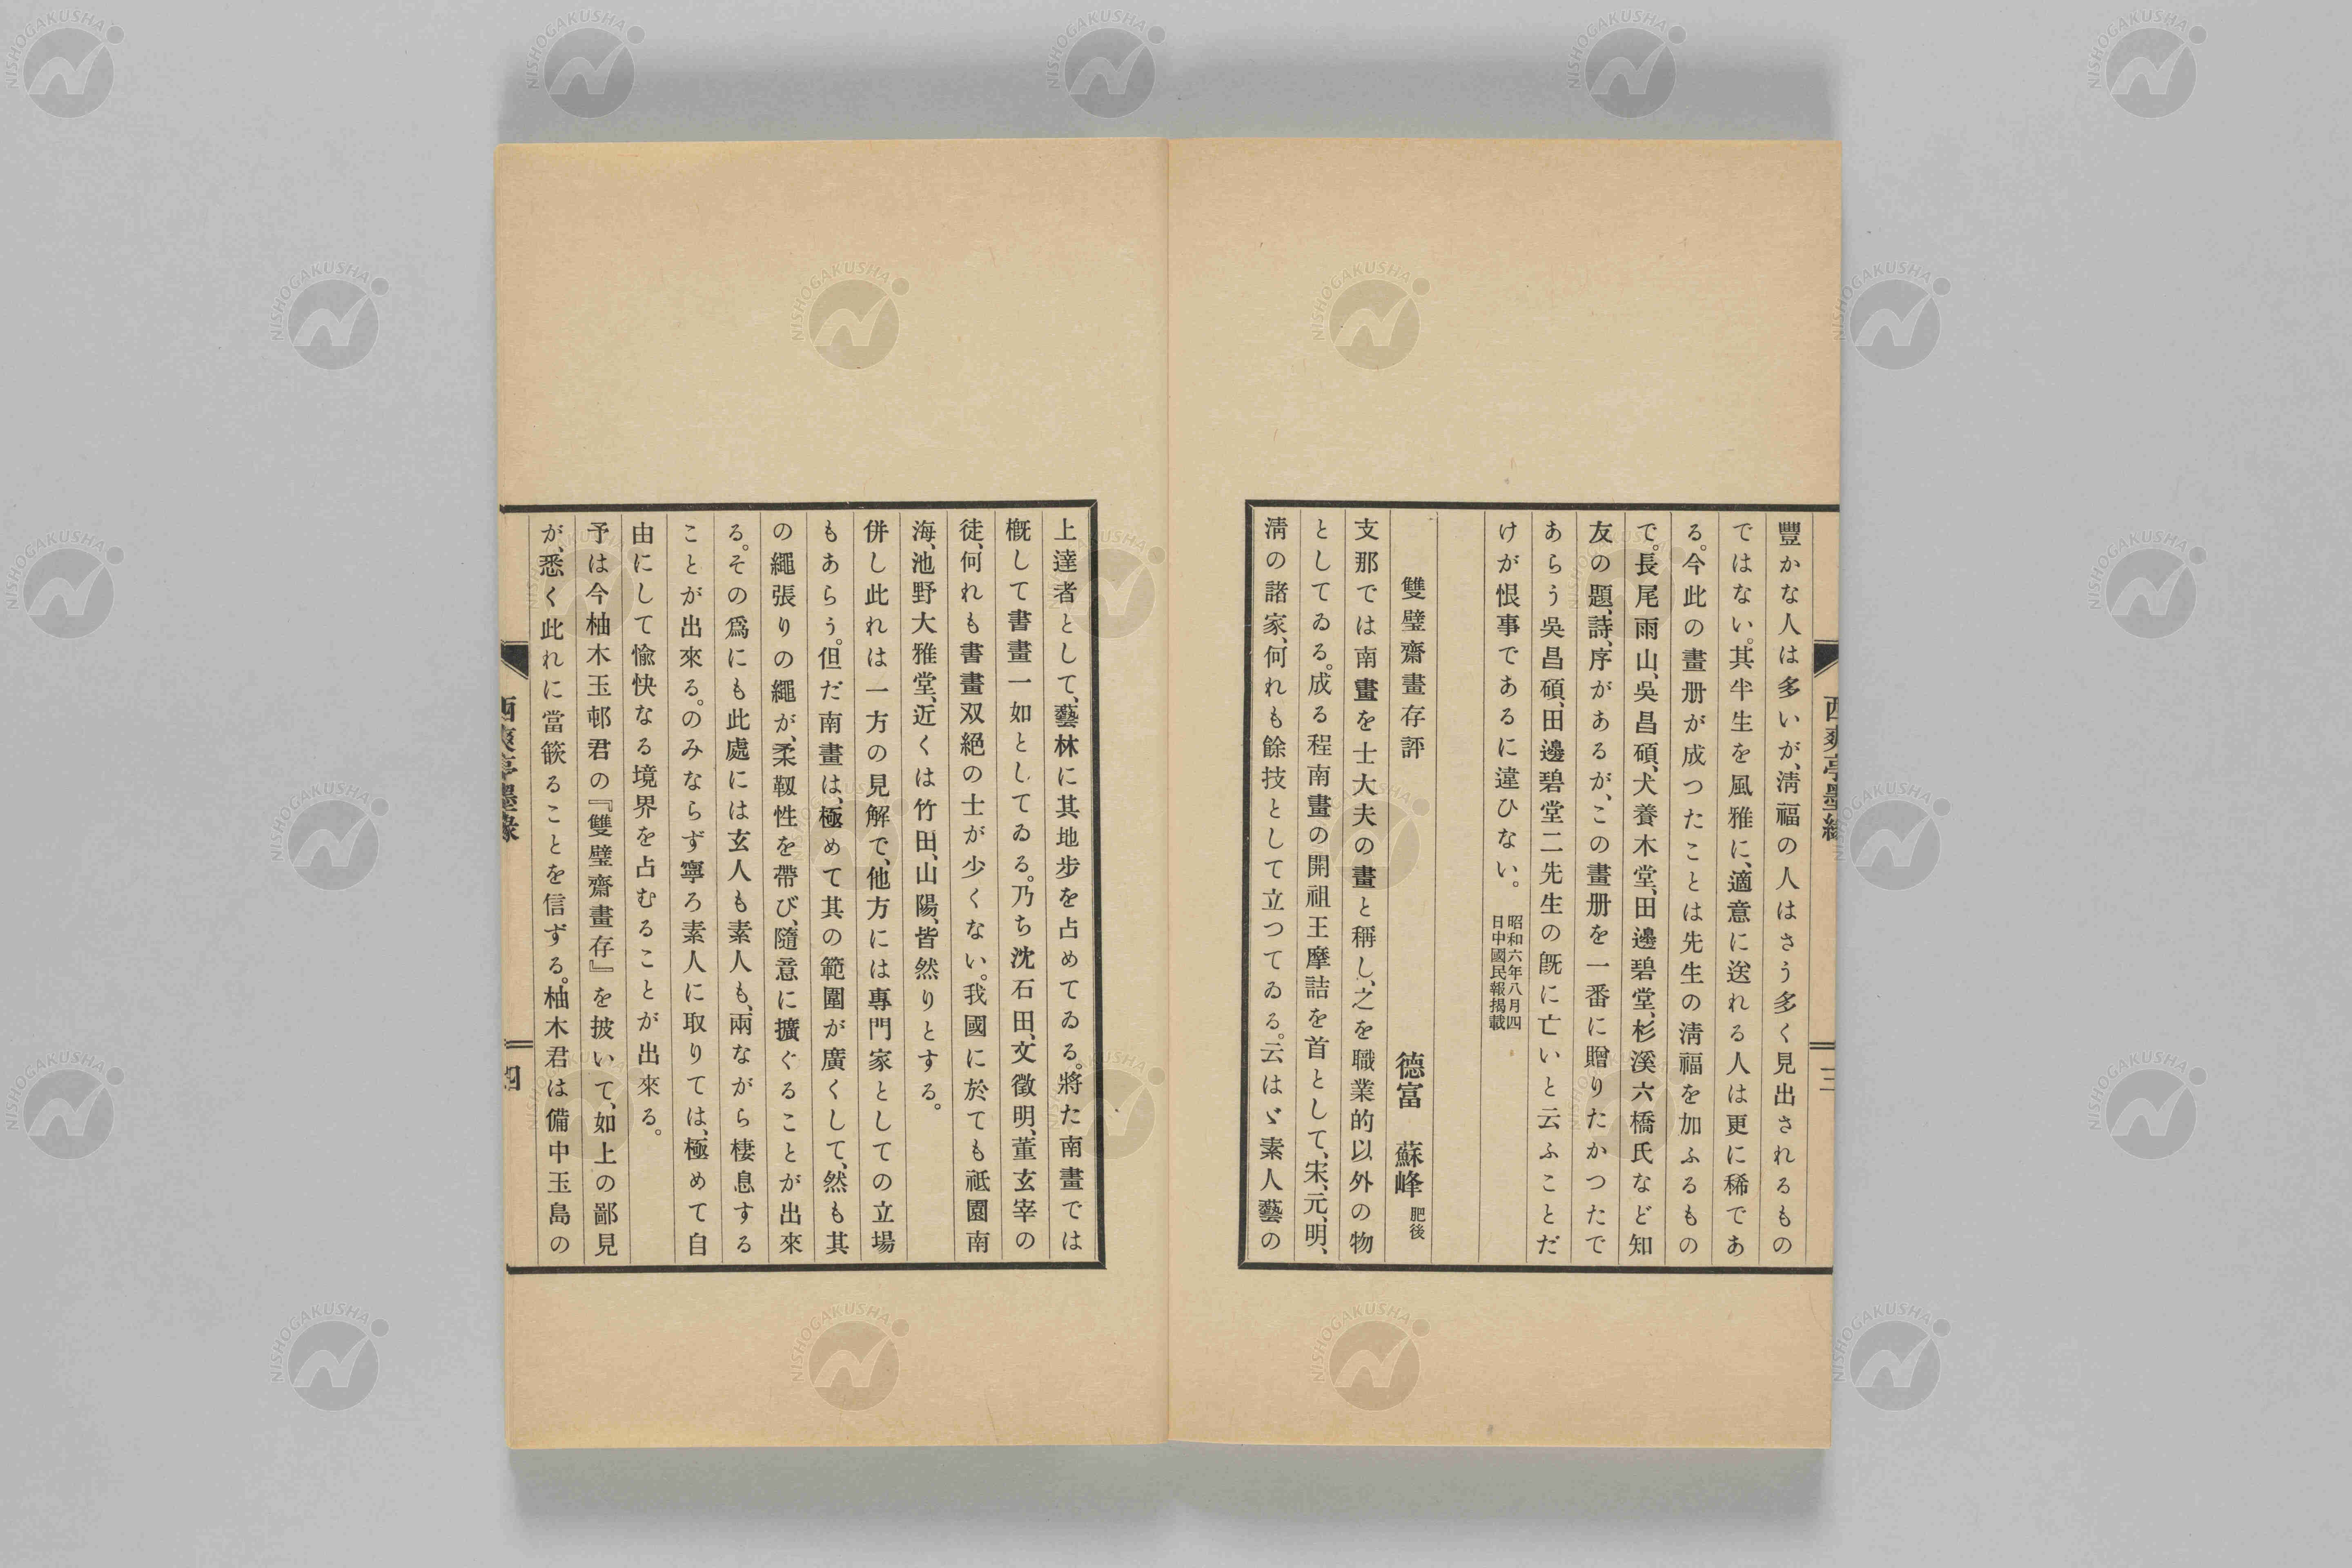 豐かな人は多いが、淸福の人はさう多く見出されるもの
ではない。其半生を風雅に、適意に送れる人は更に稀であ
る。今此の畫册が成つたことは先生の淸福を加ふるもの
で。長尾雨山、吳昌碩、犬養木堂、田邊碧堂、杉溪六橋氏など知
友の題、詩、序があるが、この畫册を一番に贈りたかつたで
あらう吳昌碩、田邊碧堂二先生の旣に亡いと云ふことだ
けが恨事であるに違ひない。
昭和六年八月四
日中國民報揭載
雙璧齋畫存評
德富 蘇峰 肥後
支那では南畫を士大夫の畫と稱し、之を職業的以外の物
としてゐる。成る程南畫の開祖王摩詰を首として、宋、元、明、
淸の諸家、何れも餘技として立つてゐる。云はゞ素人藝の
西爽亭墨緣
三
上達者として、藝林に其地步を占めてゐる。將た南畫では
槪して書畫一如としてゐる。乃ち沈石田、文徵明、董玄宰の
徒、何れも書畫双絕の士が少くない。我國に於ても祗園南
海、池野大雅堂、近くは竹田、山陽、皆然りとする。
併し此れは一方の見解で、他方には專門家としての立場
もあらう。但だ南畫は、極めて其の範圍が廣くして、然も其
の繩張りの繩が、柔靱性を帶び、隨意に擴ぐることが出來
る。その爲にも此處には玄人も素人も、兩ながら棲息する
ことが出來る。のみならず寧ろ素人に取りては、極めて自
由にして愉快なる境界を占むることが出來る。
予は今柚木玉邨君の『雙璧齋畫存』を披いて、如上の鄙見
が、悉く此れに當篏ることを信ずる。柚木君は備中玉島の
西爽亭墨緣
四
NISHOGAKUSHA